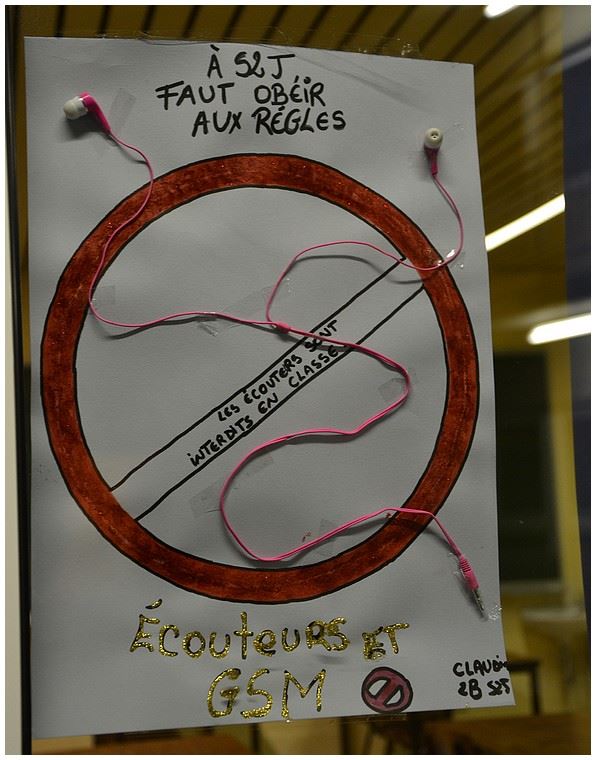 À S2J
FAUT OBÉIR
AUX RÉGLES
LES ÉCOUTERS SONT
INTERDITS EN CLASSE
ÉCOUTEURS ET
GSM
2B S2J